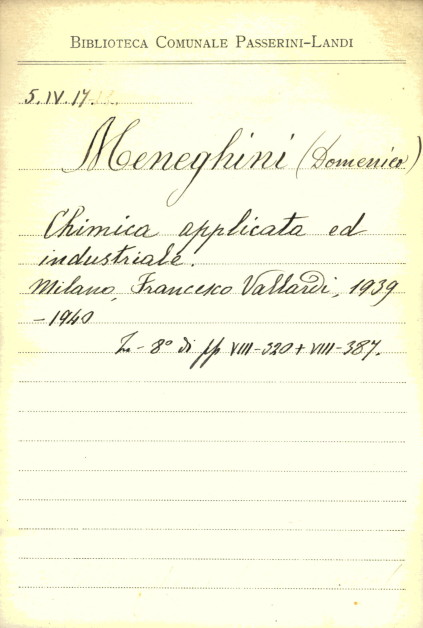 BIBLIOTECA COMUNALE PASSERINI-LANDI
5.IV.17.
Meneghini (Domenico)
Chimica applicata ed
industriale.
Milano, Francesco Vallardi, 1939
-1940
- 8° di pp VIII-320 + VIII-387.